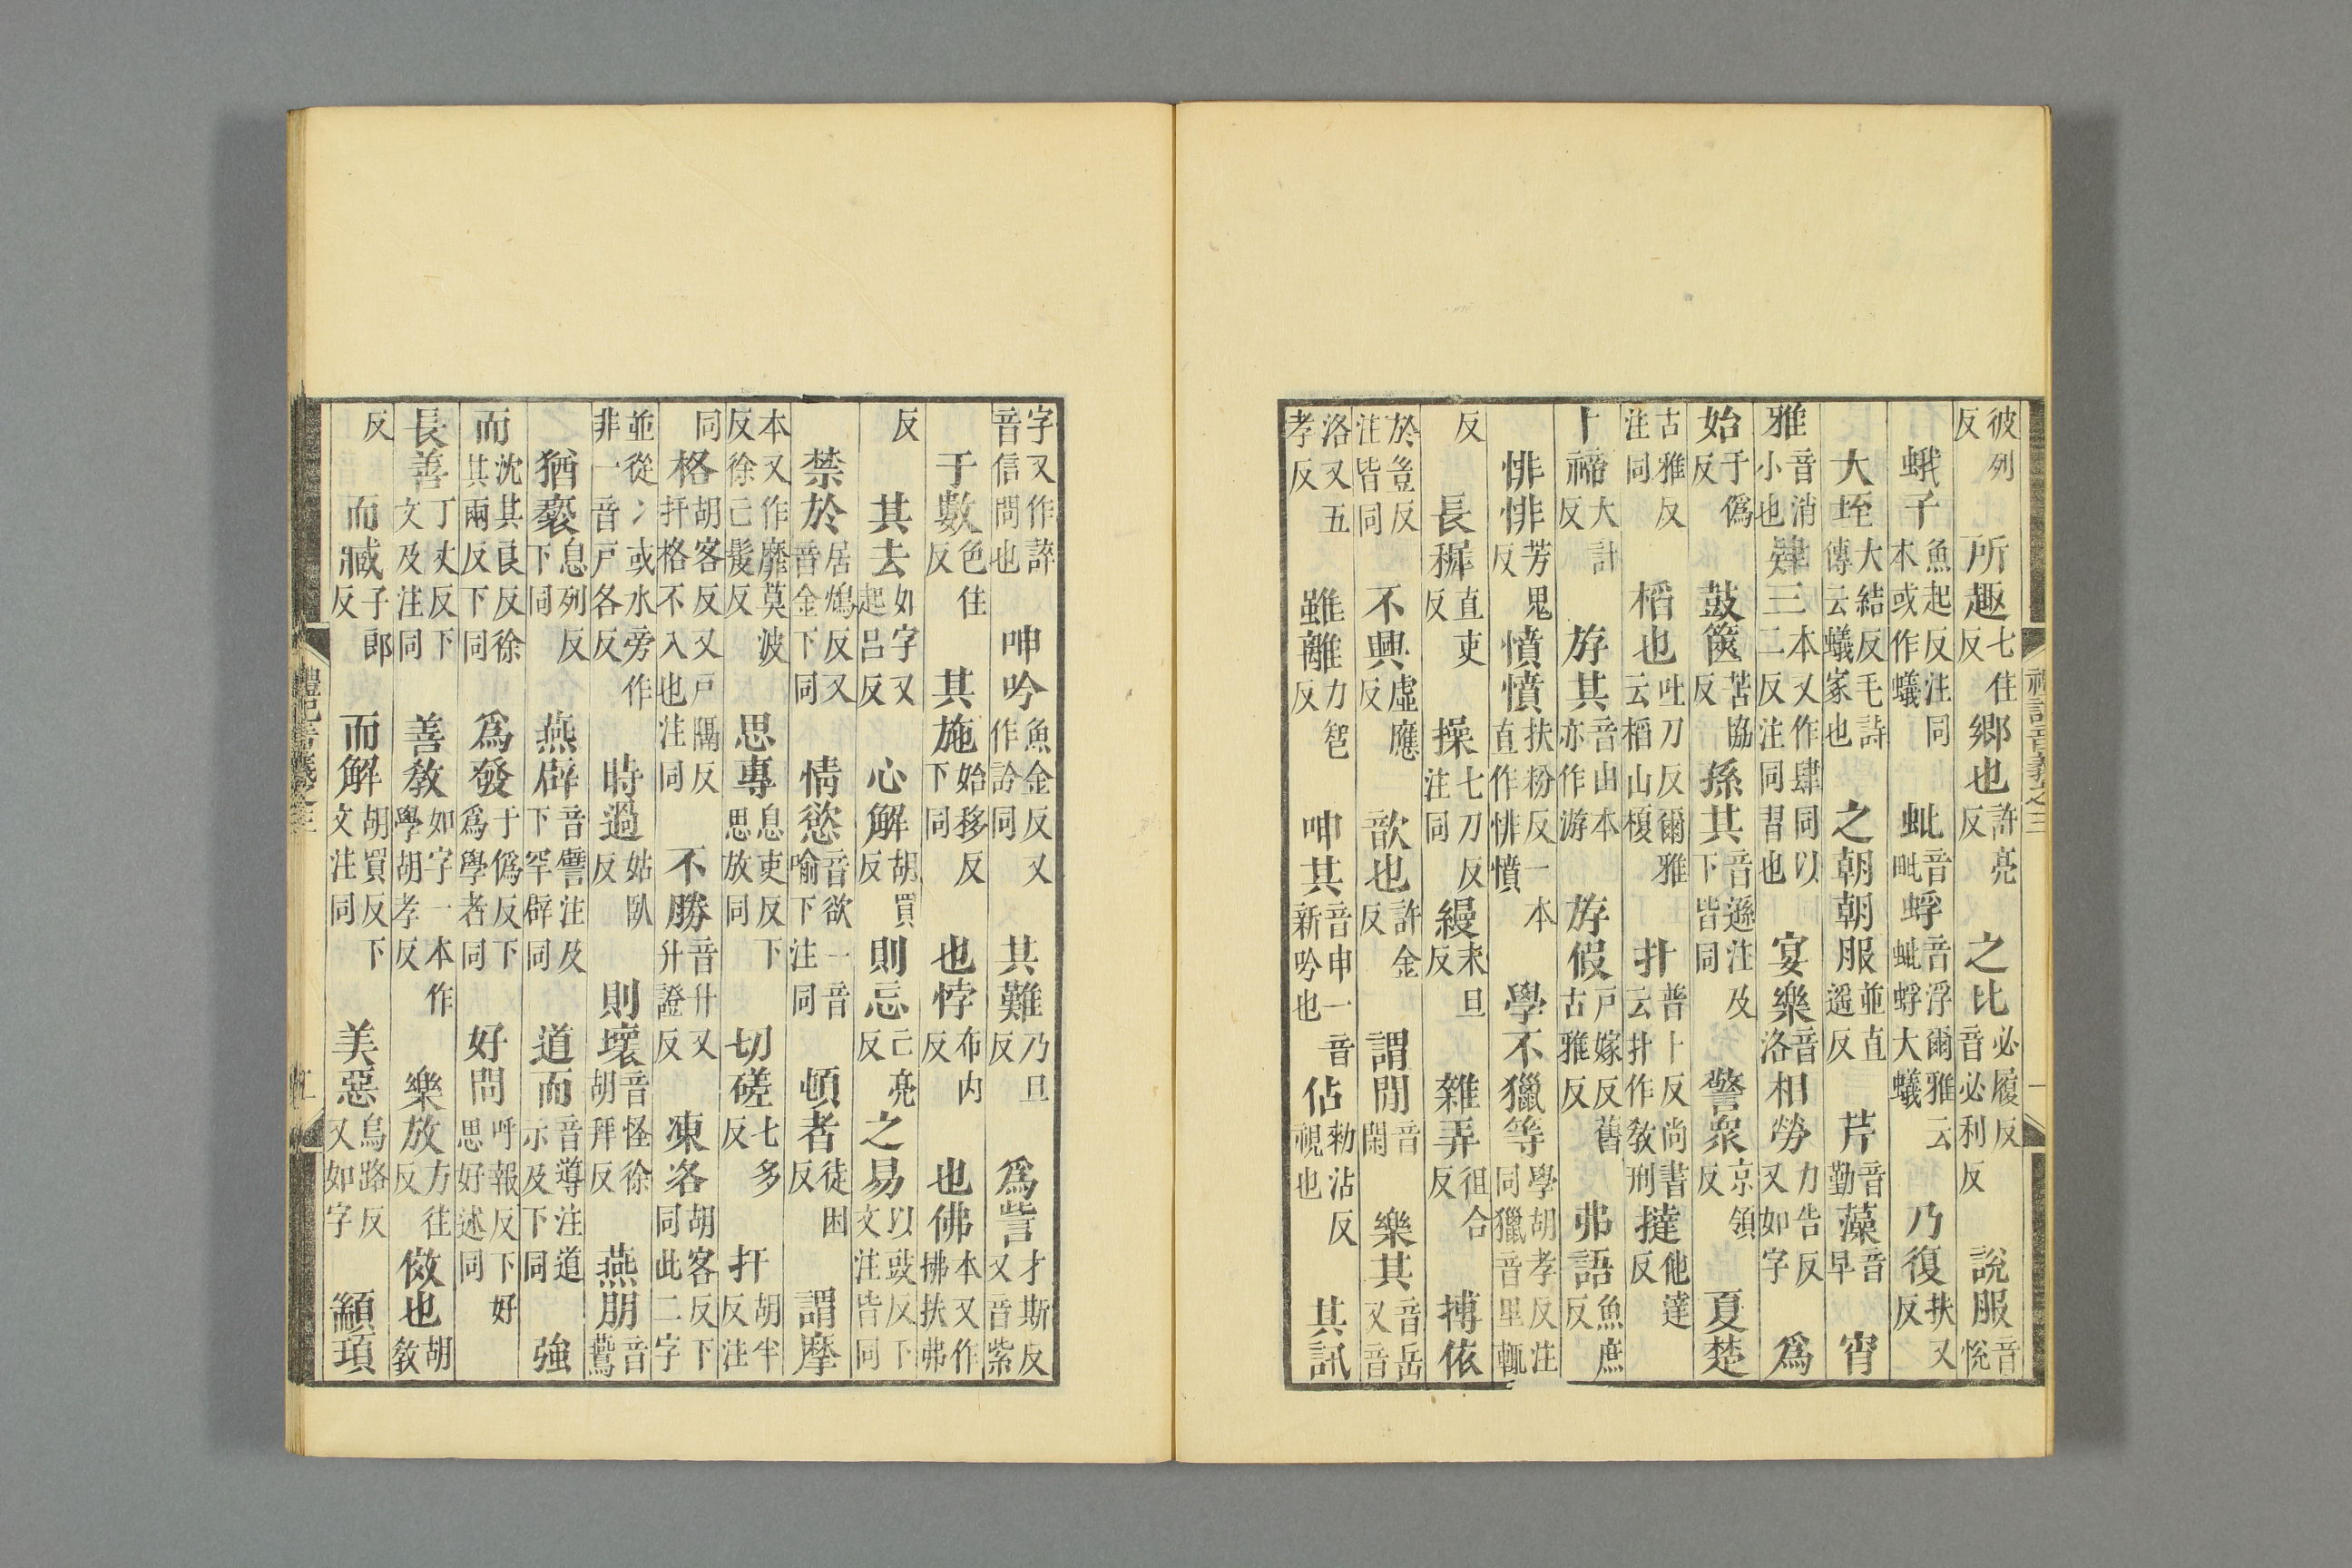 禮記音義之三
彼列反 所趣七住反 鄉也許亮反 之比必履反音必利反 說服音悅
蛾子魚起反注同本或作蟻 蚍音毗蜉音浮爾雅云蚍蜉大蟻 乃復扶又反
大垤大結反毛詩傳云蟻冢也 之朝朝服並直遥反 芹音勤藻音早 宵
雅音消小也 肄三本又作肆同以二反注同習也 宴樂音洛相勞力告反又如字 爲
始于偽反 鼓篋苦協反 孫其音遜注及下皆同 警衆京領反 夏楚
古雅反注同 稻也吐刀反爾雅云稻山榎 扑普卜反尚書云扑作敎刑 撻他達反
卜禘大計反 斿其音由本亦作游 斿假戶嫁反舊古雅反 弗語魚庶反
悱悱芳鬼反 憤憤扶粉反一本直作悱憤 學不獵等學胡孝反注同獵音里輒
反 長稺直吏反 操七刀反注同 縵末旦反 雜弄徂合反 搏依
於豈反注皆同 不興虛應反 歆也許金反 謂閒音閑 樂其音岳又音
洛又五孝反 雖離力智反 呻其音申一音新吟也 佔勑沾反視也 其訊
字又作誶音信問也 呻吟魚金反又作訡同 其難乃旦反 爲訾才斯反又音紫
于數色住反 其施始移反下同 也悖布内反 也佛本又作拂扶弗
反 其去如字又起呂反 心解胡買反 則忘亡亮反 之易以豉反下文注皆同
禁於居鴆反又音金下同 情慾音欲一音喻下注同 頓者徒困反 謂摩
本又作靡莫波反徐亡髮反 思專息吏反下思放同 切磋七多反 扞胡半反注
同 格胡客反又戶隔反扞格不入也注同 不勝音升又升證反 凍洛胡客反下同此二字
並從冫或水旁作非一音戶各反 時過姑臥反 則壞音怪徐胡拜反 燕朋音鷰
猶褻息列反下同 燕辟音譬注及下罕辟同 道而音導注道示及下同 強
而沈其良反徐其兩反下同 爲發于偽反下爲學者同 好問呼報反下好思好述同
長善丁丈反下文及注同 善敎如字一本作學胡孝反 樂放方往反 傚也胡敎
反 而臧子郎反 而解胡買反下文注同 美惡烏路反又如字 顓頊
禮記音義之三